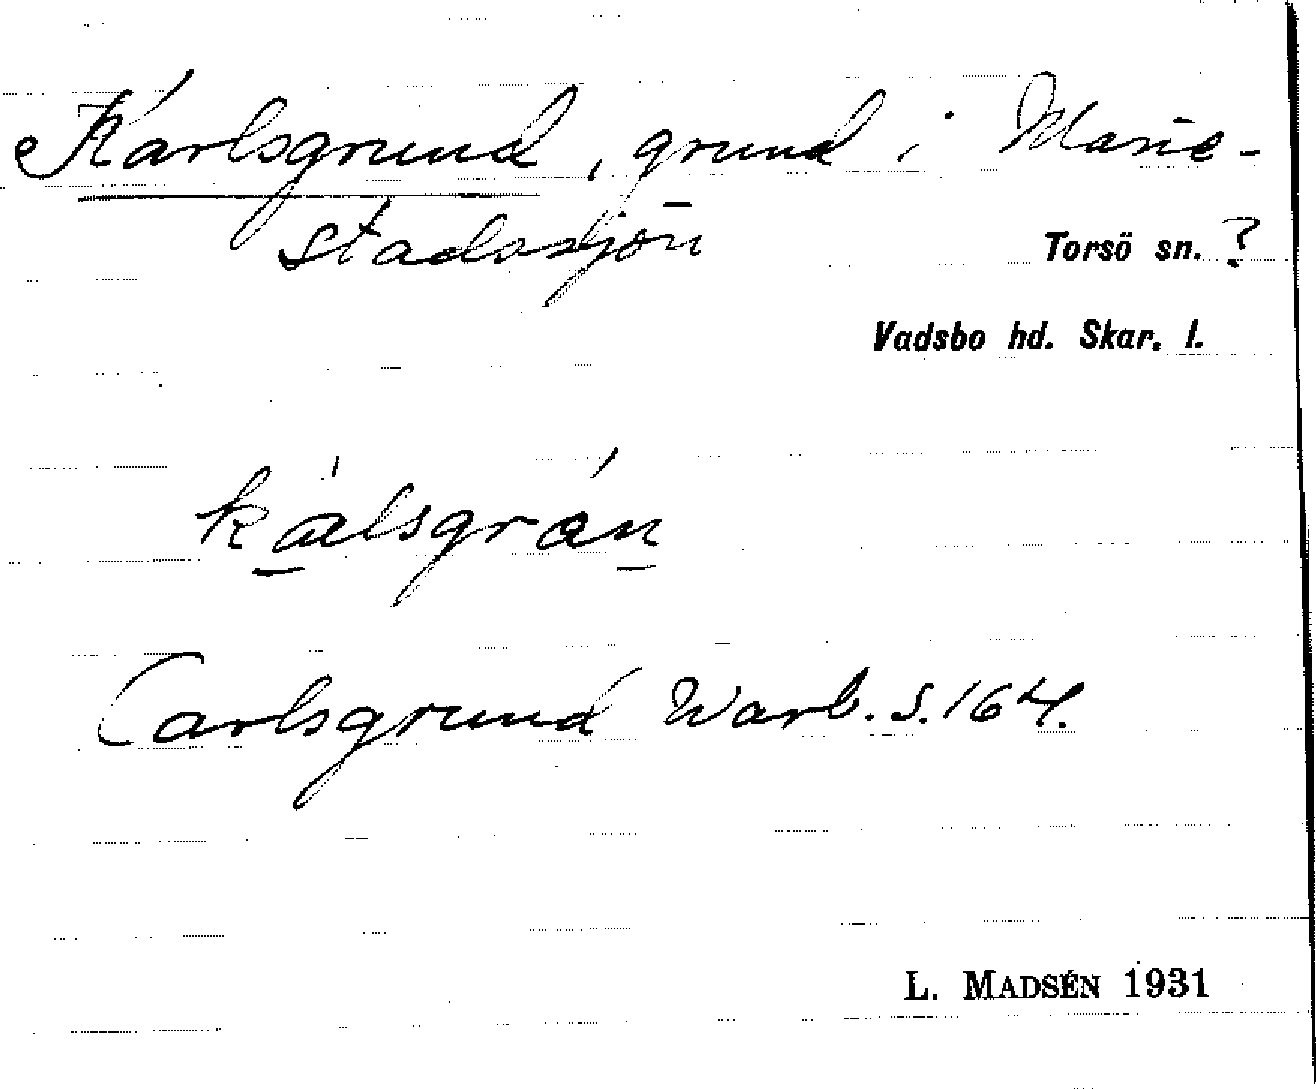 Karlsgrund, grund i Marie-
stadssjön
Torsö sn. ?
Vadsbo hd. Skar. l.
kálsgrán
Carlsgrund Warb. S. 164.
L. MADSÉN 1931